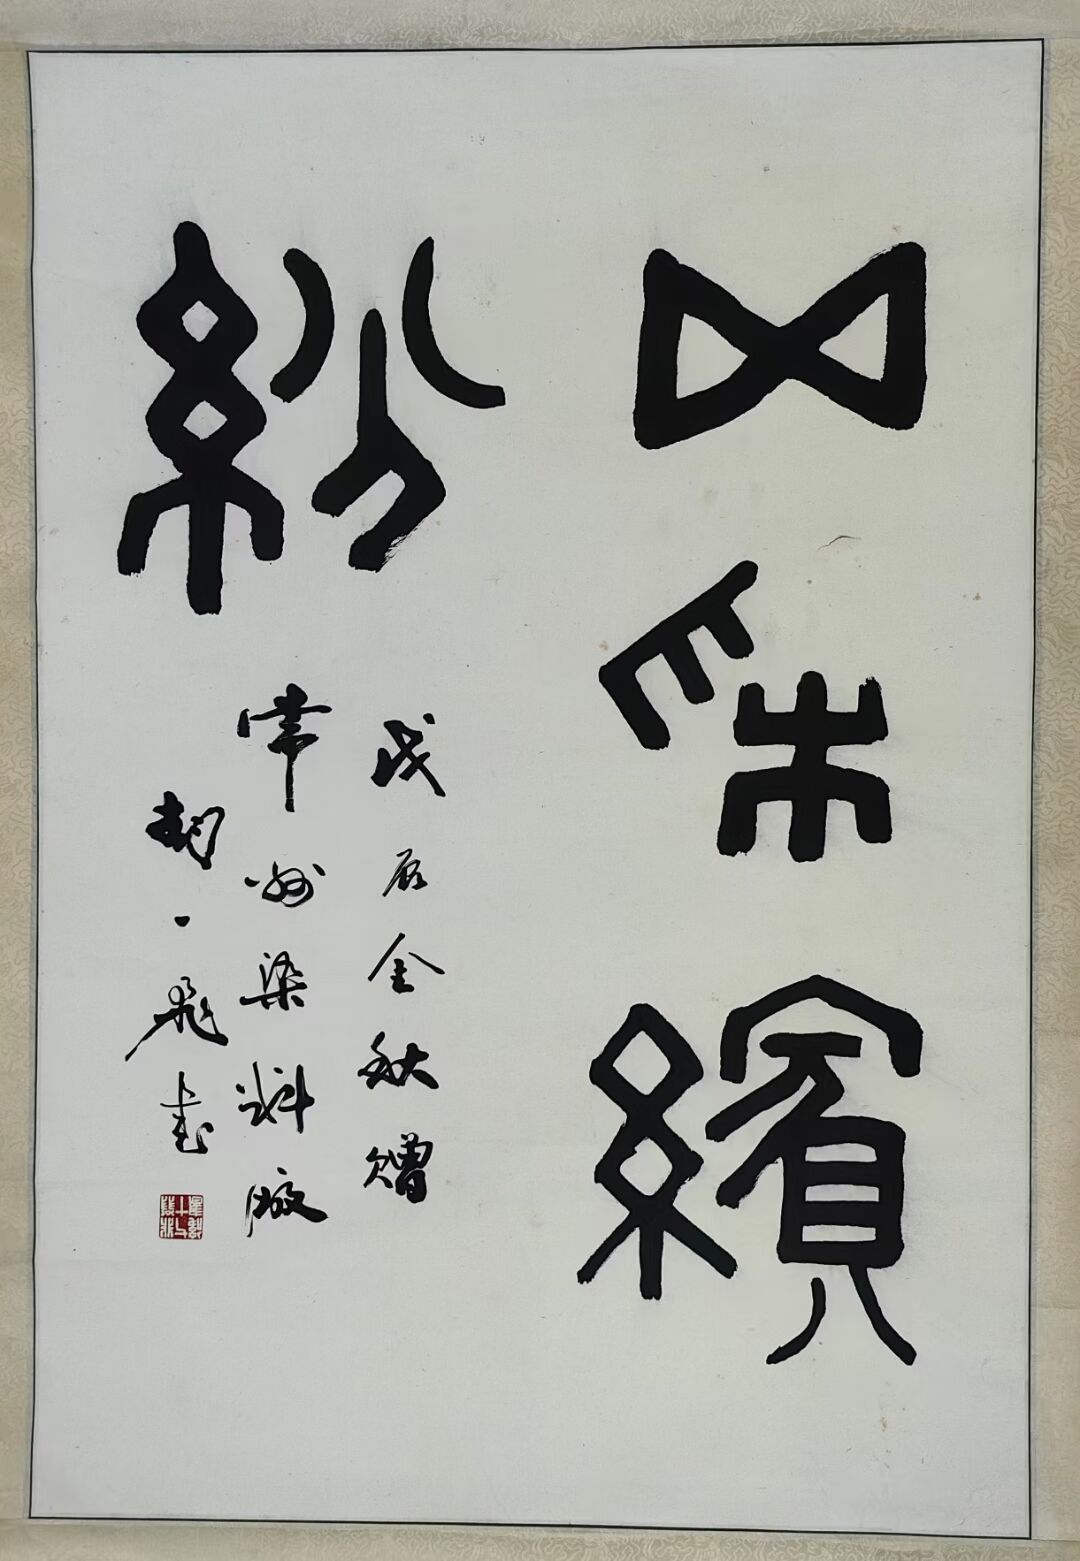 五采繽
紛
戊辰金秋贈
常州染料廠
胡一飛書